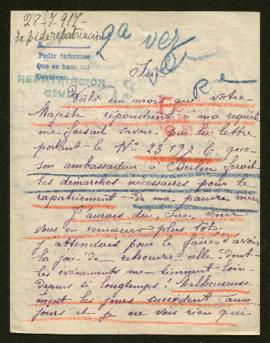 28-7-917-
Se pide repatriación
2ª vez
Pedir informes
REPATRIACIÓN
CIVIL
Sire,
Voilà un mois que Votre
Majesté répondant à ma requête
me faisait savoir par la lettre
portant le Nº 23197 C, que
son ambassadeur à Berlin ferait
les démarches nécessaires pour le
rapatriement de ma pauvre mère
J'aurais dû, Sire, venir
vous en remercier plus tôt;
attendais pour le faire d'avoir
la joie de retrouver celle dont
les événements me tiennent loin
depuis si longtemps! Malheureuse-
ment les jours succèdent aux
jours et je ne vois rien qui